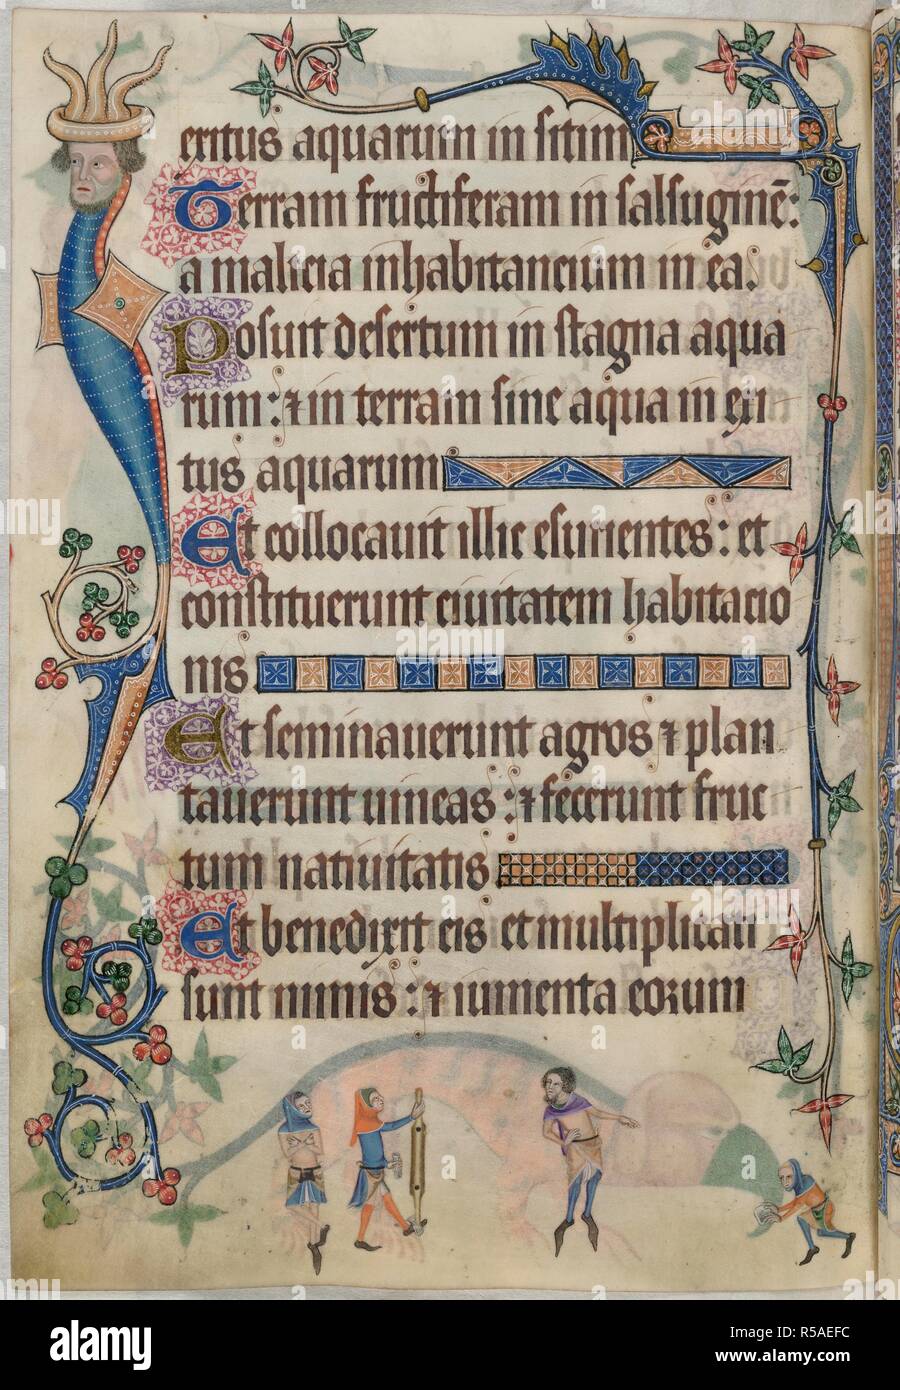 eritus aquarum in sitim
Terram fructiferam in salsuginē:
a malicia inhabitancium in ea.
Posuit desertum in stagna aqua
rum: ⁊ in terram sine aqua in exi
tus aquarum
Et collocauit illic esurientes: et
constituerunt ciuitatem habitacio
nis
Et seminauerunt agros ⁊ plan
tauerunt uineas: ⁊ fecerunt fruc
tum natiuitatis
Et benedixit eis et multiplicati
sunt nimis: ⁊ iumenta eorum
alamy
Image ID: R5AEFC
www.alamy.com